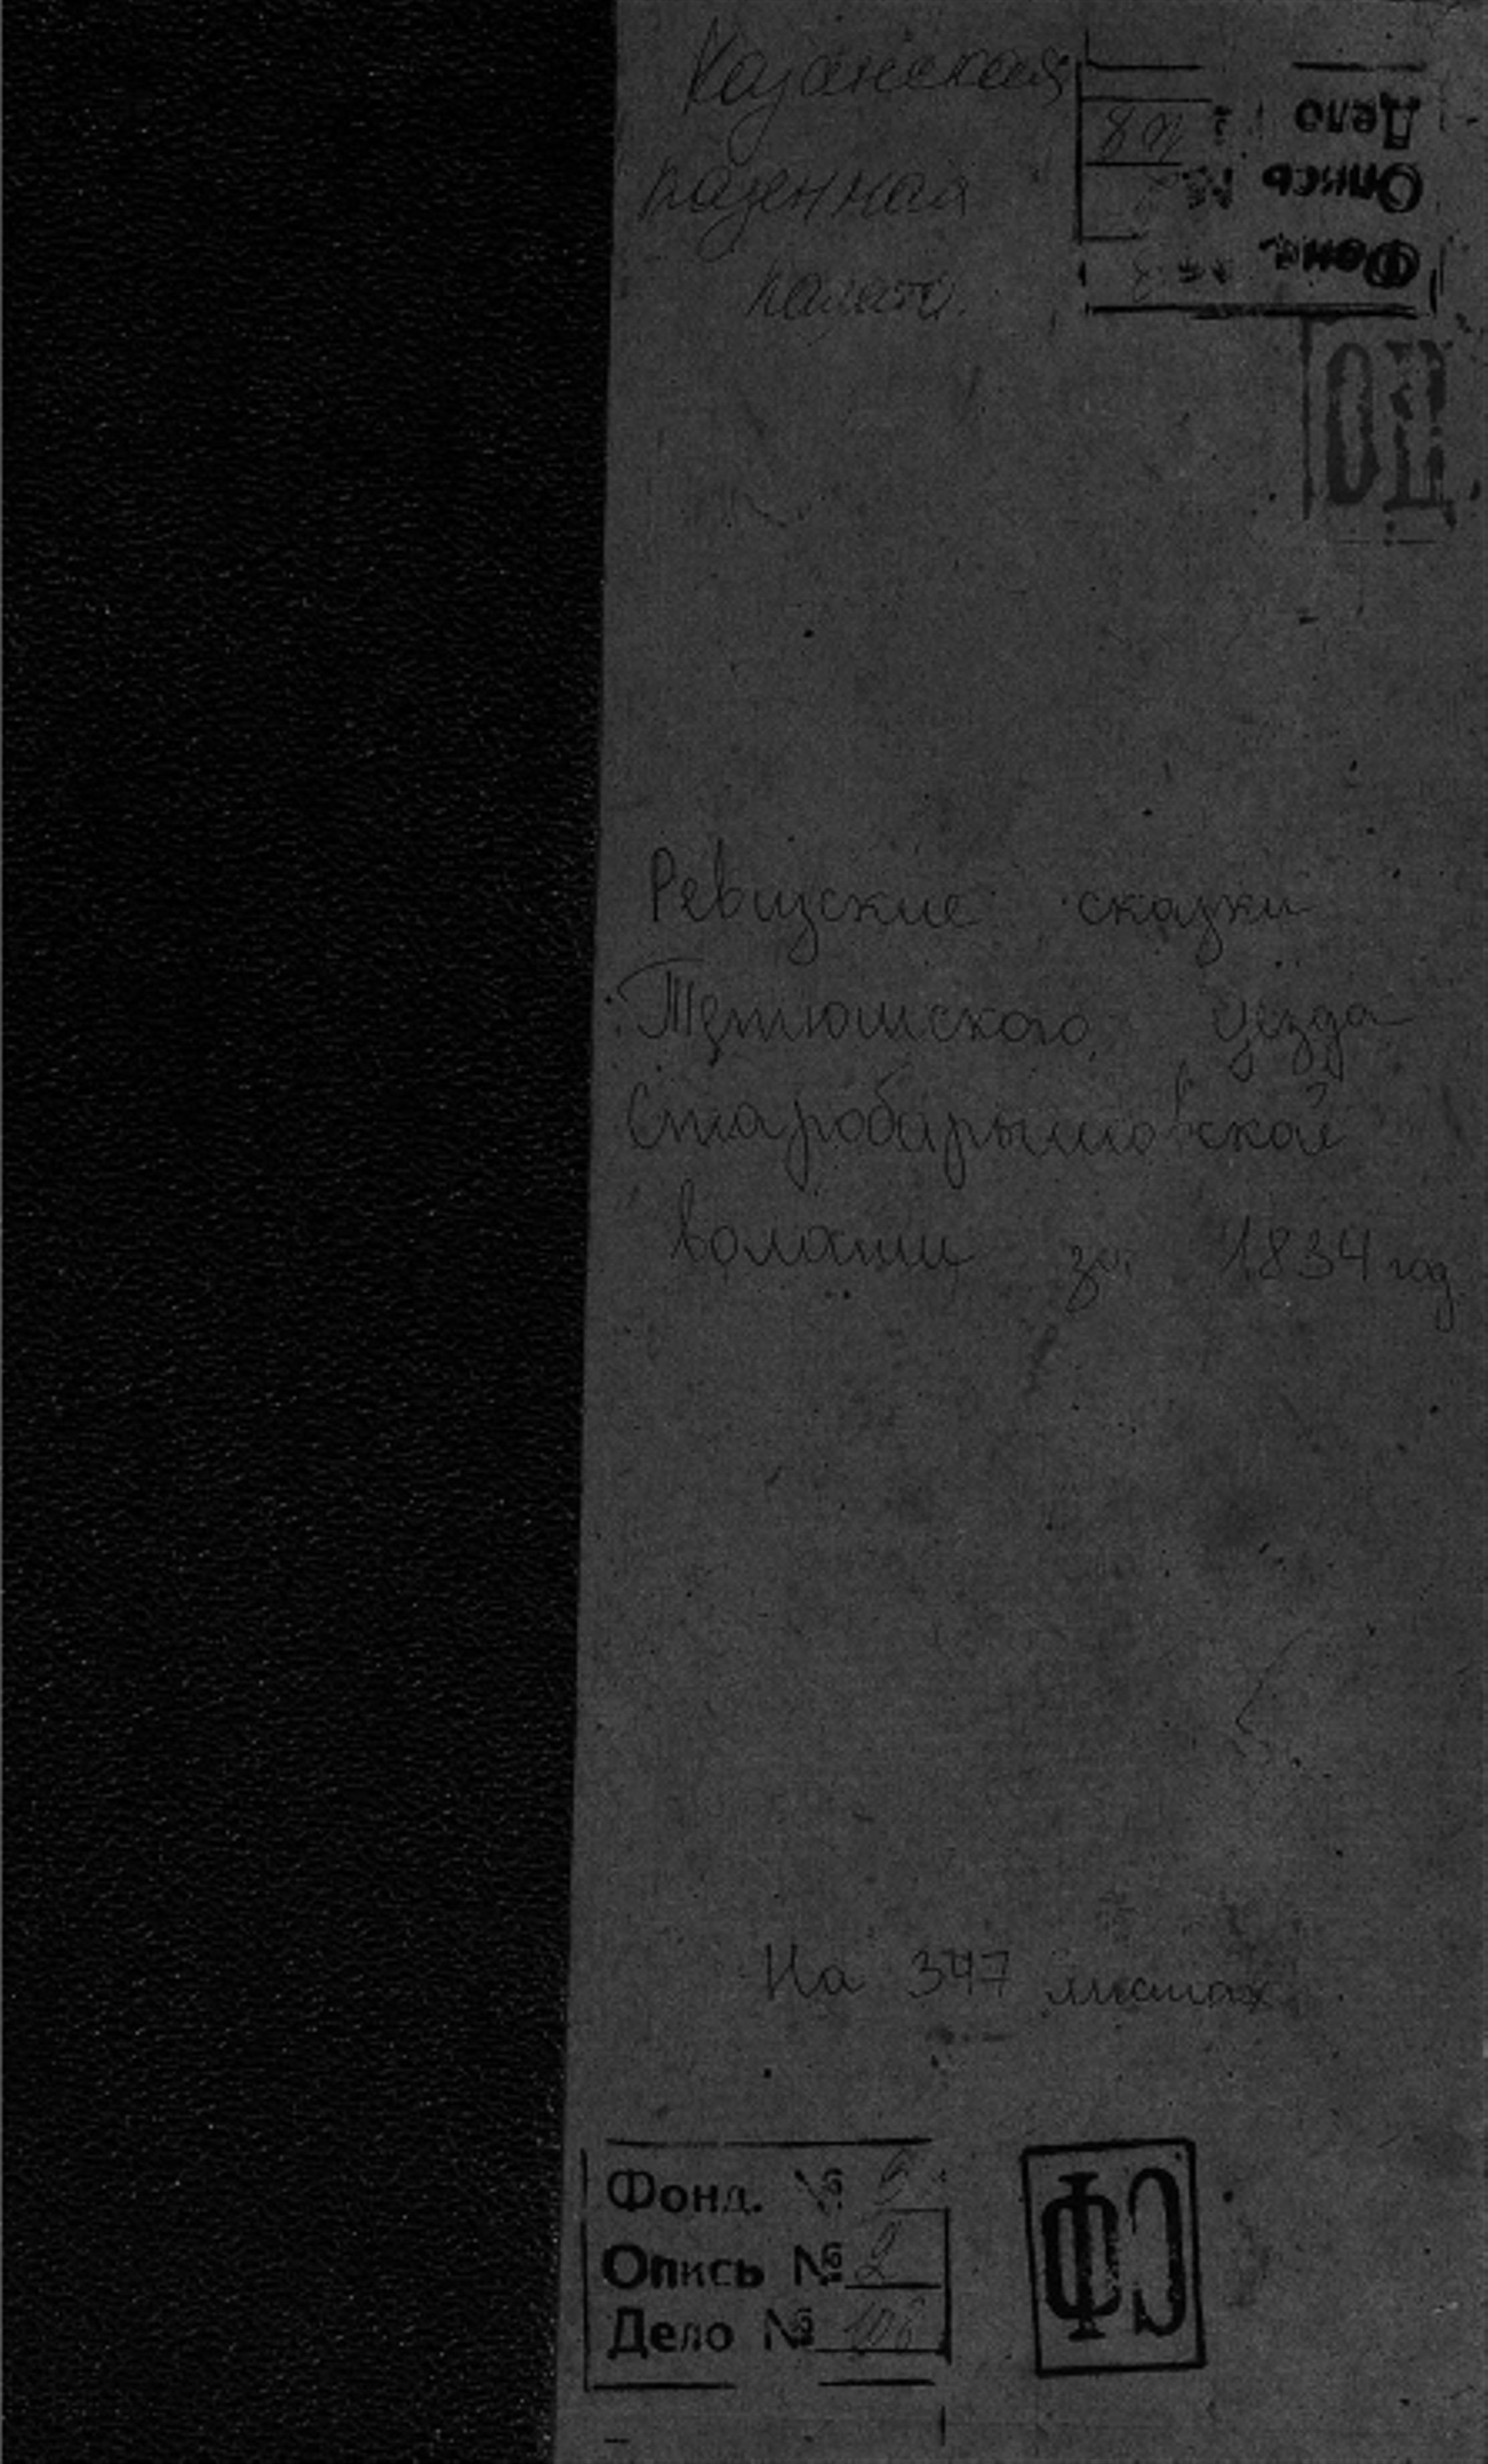 Казанская
казенная
палата.
Дело
Опись №
Фонд. №
Ревизские сказки
Тетюшского уезда
Старобарышевской
волости за 1834 год
На 347 листах
Фонд. №
Опись № 2
Дело №
ФЭ